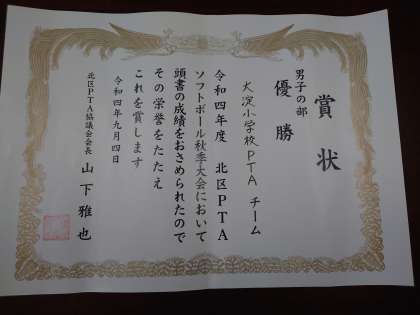 賞状
男子の部
優勝
大淀小学校PTA チーム
令和四年度 北区PTA
ソフトボール秋季大会において
頭書の成績をおさめられたので
その栄誉をたたえ
これを賞します
令和四年九月四日
北区PTA協議会会長 山下雅也